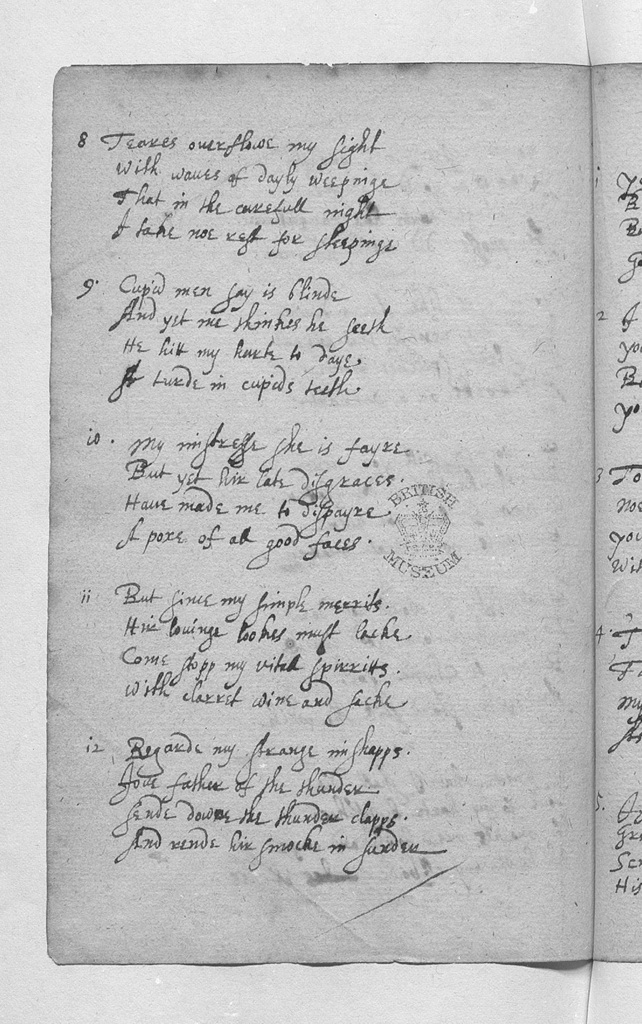 8 Teares overflowe my sight
With waves of dayly weepinge
That in the carefull night
I take noe rest for sleepinge
9. Cupid men say is blinde
And yet me thinkes he seeth
He hitt my harte to daye
A turde in cupids teeth
10. My mistresse she is fayre
But yet hir late disgraces.
Have made me to dispayre
A poxe of all good faces.
BRITISH
MUSEUM
11 But since my simple merrits.
Hir lovinge lookes must lacke
Come stopp my vitall spirritts.
With clarret wine and sacke
12 Regarde my strange mishapps.
Jove father of the thunder
Sende downe the thunder clapps.
And rende hir smocke in sunder
1
2
you
3 To
you
4
5.
His